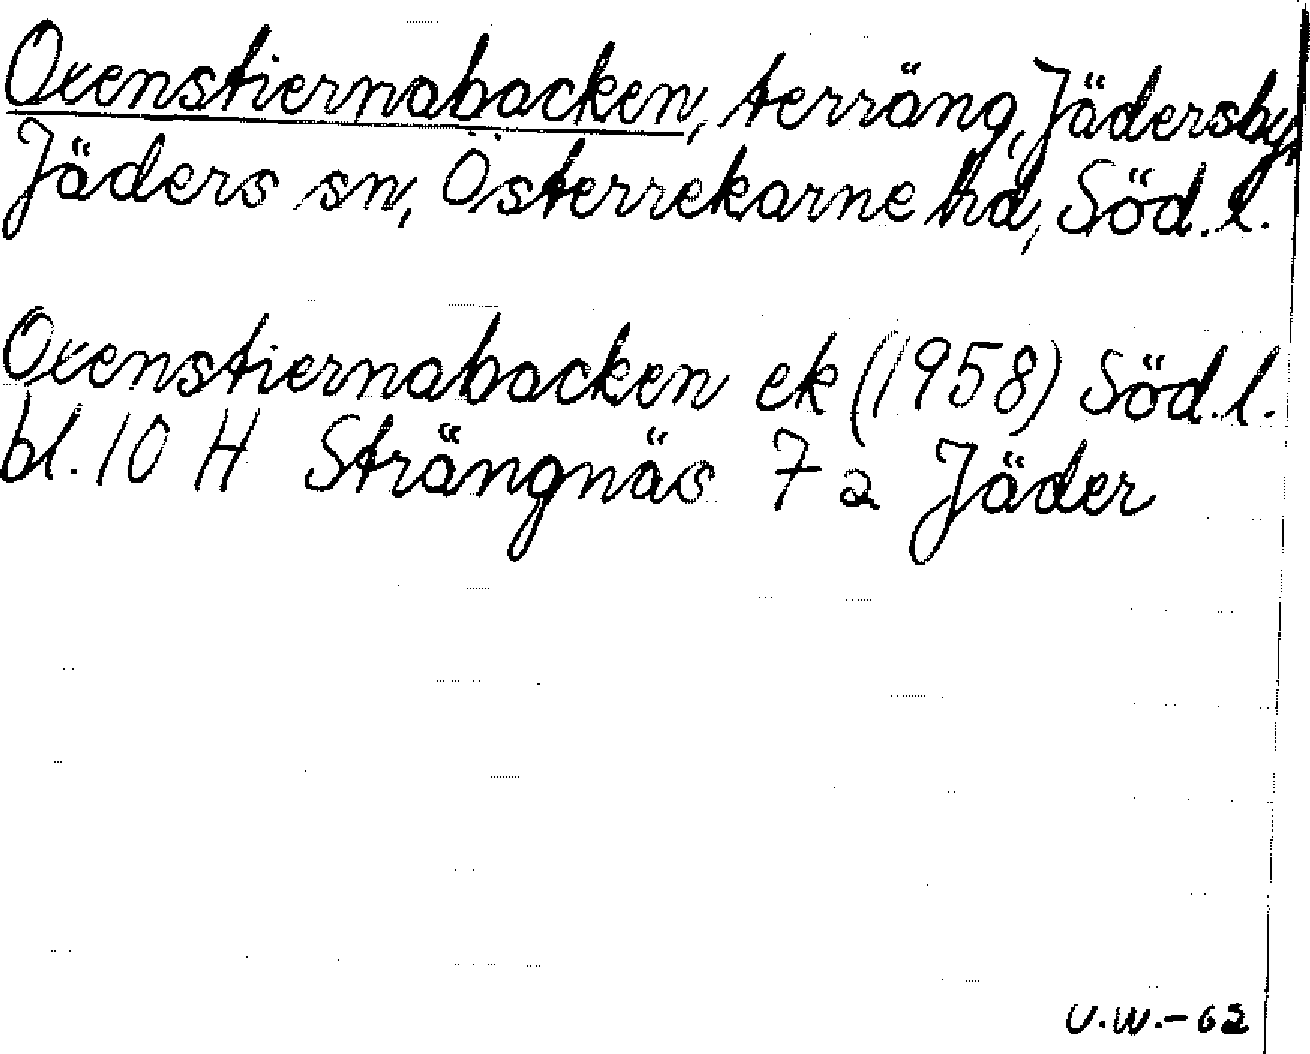 Oxenstiernabacken, terräng, Jädersby,
Jäders sn, Österrekarne hd, Söd. l.
Oxenstiernabacken ek (1958) Söd. l.
bl. 10 H Strängnäs 7 a Jäder
U.W.-62